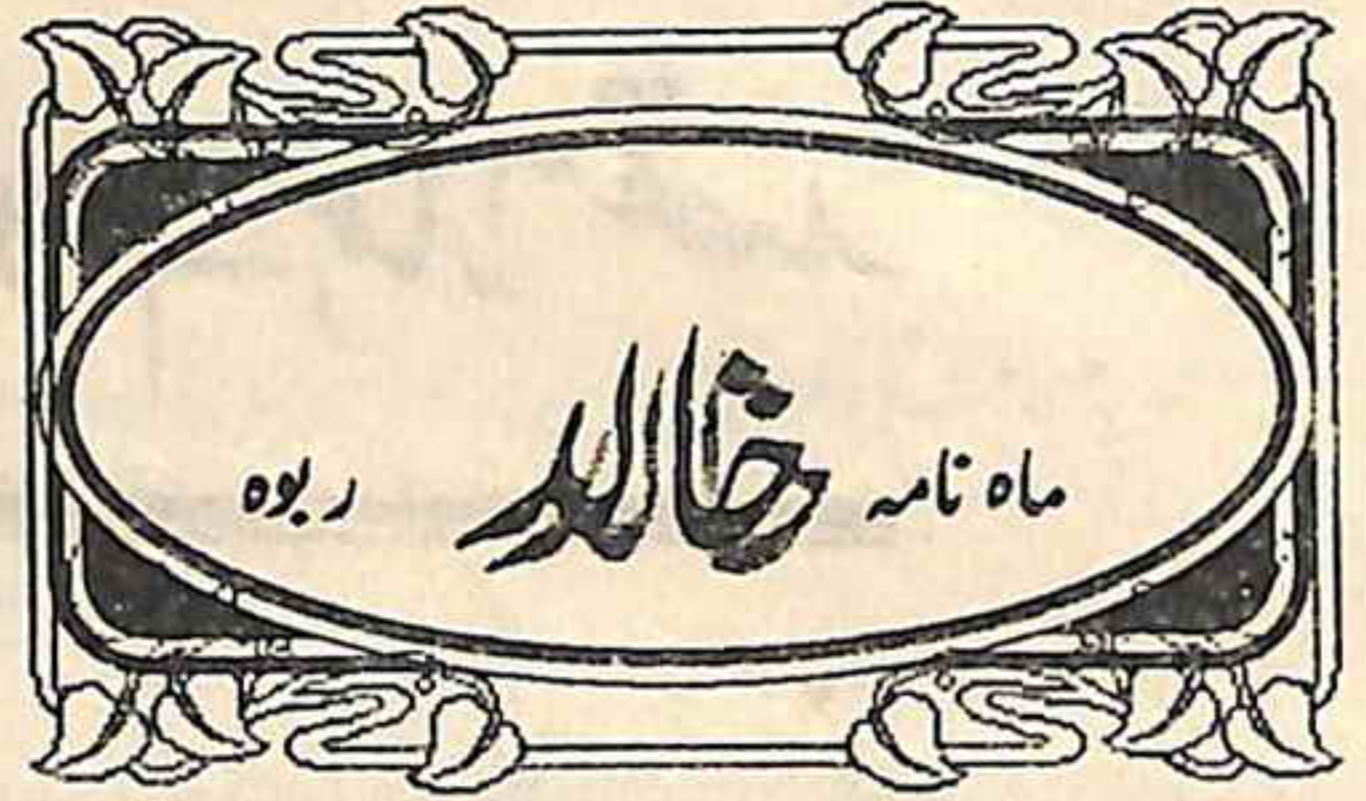 ماہ نامہ خالد ربوہ